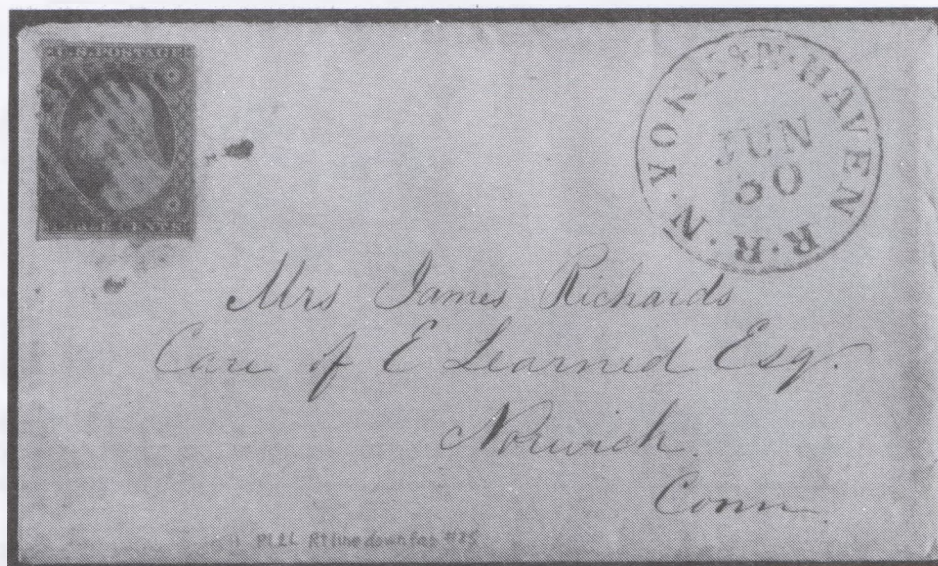 U.S. POSTAGE
THREE CENTS
N. YORK & N. HAVEN R.R.
JUN
30
Mrs James Richards
Care of E Learned Esq.
Norwich
Conn.
Rt line down
#25